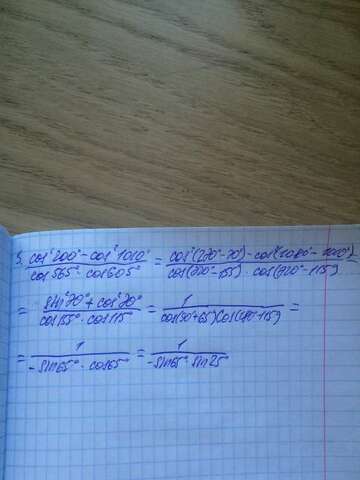 5. cos²200° - cos²1010° / cos565° · cos605° = cos²(270° - 70°) - cos²(1080° - 1010°) / cos(720° - 155°) · cos(720° - 115°)
= sin²70° + cos²70° / cos155° · cos115° = 1 / cos(90+65) cos(180-115°) =
= 1 / -sin65° · cos65° = 1 / -sin65° sin25°